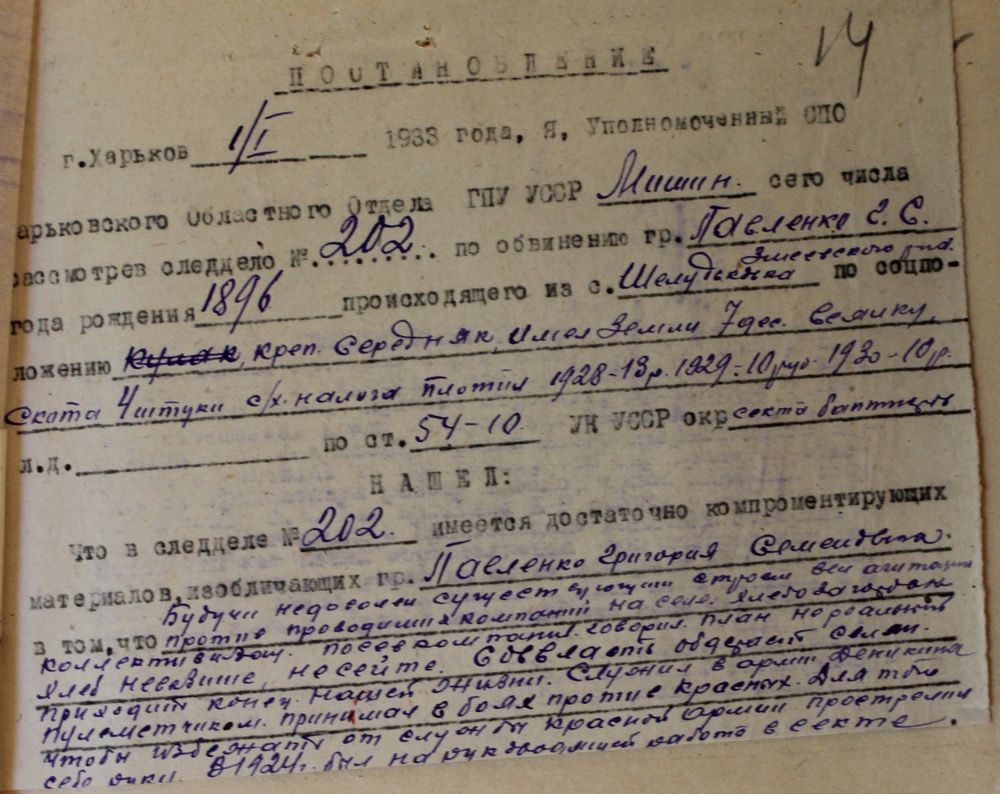 14
ПОСТАНОВЛЕНИЕ
г.Харьков 1/I 1933 года, Я, Уполномоченный СПО
арьковского Областного Отдела ГПУ УССР Мишин. сего числа
рассмотрев следдело № 202. по обвинению гр. Павленко Г. С.
Змиевского
года рождения 1896 происходящего из с. Шелудьковка по соцпо-
ложению кулак, креп. Середняк, имел Земли 7 дес. всяку,
Скота 4 штуки с/х. налога платил 1928-13 р. 1929-10 руб. 1930-10 р.
л.д. по ст. 54-10. УК УССР окр секта баптистов
НАШЕЛ:
Что в следделе № 202. имеется достаточно компроментирующих
материалов, изобличающих гр. Павленко Григория Семеновича.
в том, что Будучи недоволен существующим строем вел агитацию
против проводимых компаний на селе. Хлебозаготовки
коллективизац. посевкомпания. говорил план нереальный
Хлеб невезите, несейте. Соввласть обдерает селян.
приходит конец нашей жизни. Служил в армии Деникина
пулеметчиком. принимал в боях против Красных. Для того
чтобы избежать от службы Красной армии прострелил
себе руки. В 1924 г. был на руководящей работе в секте.